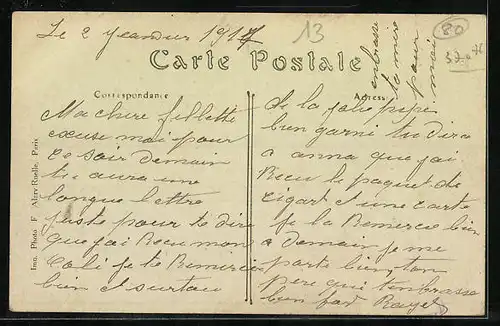 Le 2 Janvier 1917
13
80
Carte Postale
Correspondance
Adresse
Ma chere fillette
excuse moi pour
ce soir demain
tu aura une
longue lettre
juste pour te dire
que j'ai Recu mon
Coli je te Remercie
bien et surtou
de la jolie pipe
bien garni tu dira
a anna que j'ai
Recu le paquet de
cigart et une carte
je la Remercie bien
a demain je me
porte bien, ton
pere qui t'enbrasse
bien for
enbrasse
ta mire
pour
moi
Imp. Photo F Paris